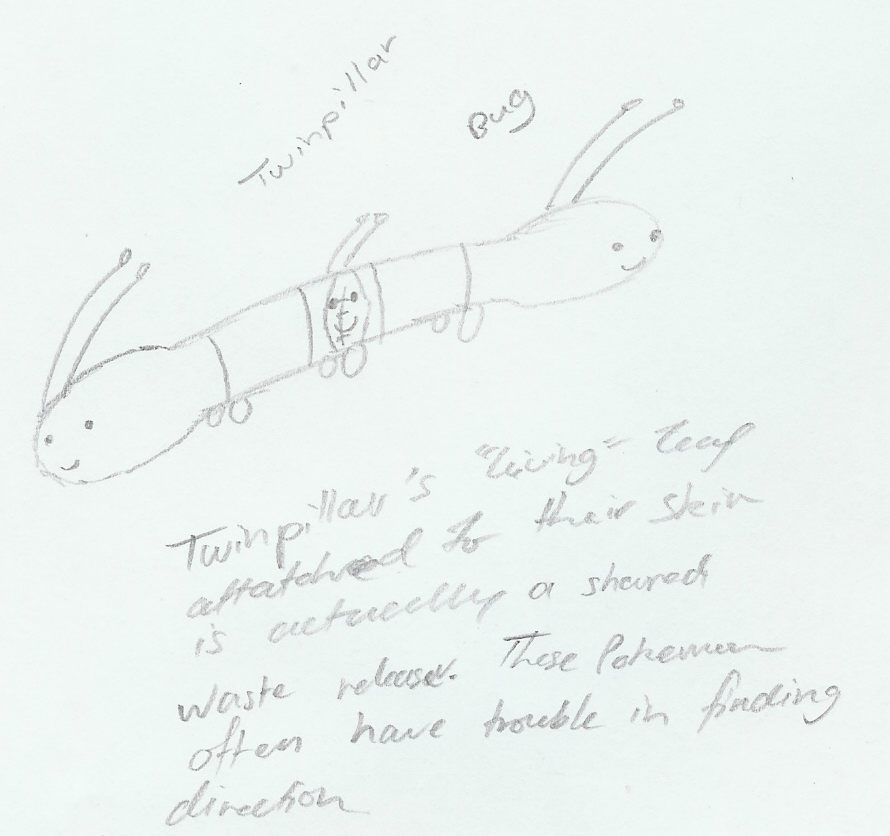 Twinpillar
Bug
Twinpillar's "living" leaf
attatched to their skin
is actually a shared
waste release. These Pokemon
often have trouble in finding
direction